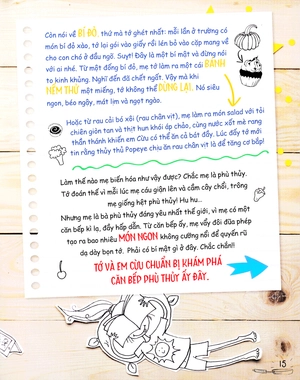 Còn nói về BÍ ĐỎ, thứ mà tớ ghét nhất: mỗi lần ở trường có
món bí đỏ xào, tớ lại gói vào giấy rồi lén bỏ vào cặp mang về
cho con chó ở đầu ngõ. Suỵt! Đây là một bí mật và đừng nói
với ai nhé. Từ một đống bí đỏ, mẹ tớ làm ra một cái BÁNH
to kinh khủng. Nghĩ đến đã chết ngất. Vậy mà khi
NẾM THỬ một miếng, tớ không thể DỪNG LẠI. Nó siêu
ngon, béo ngậy, mát lịm và ngọt ngào.
Hoặc từ rau cải bó xôi (rau chân vịt), mẹ làm ra món salad với tỏi
chiên giòn tan và thịt hun khói áp chảo, cùng nước xốt mè rang
thần thánh khiến em Cừu có thể ăn cả bát đầy. Lúc đấy tớ mới
tin rằng thủy thủ Popeye chịu ăn rau chân vịt là để tăng cơ bắp!
Làm thế nào mẹ biến hóa như vậy được? Chắc mẹ là phù thủy.
Tớ đoán thế vì mỗi lúc mẹ cáu giận lên và cầm cây chổi, trông
mẹ giống hệt phù thủy! Hu hu...
Nhưng mẹ là bà phù thủy đáng yêu nhất thế giới, vì mẹ có một
căn bếp kì lạ, đầy hấp dẫn. Từ căn bếp ấy, mẹ vẩy đôi đũa phép
tạo ra bao nhiêu MÓN NGON không cưỡng nổi để quyến rũ
dạ dày bọn tớ. Phải có bí mật gì ở đây. Chắc chắn!
TỚ VÀ EM CỪU CHUẨN BỊ KHÁM PHÁ
CĂN BẾP PHÙ THỦY ẤY ĐÂY.
15